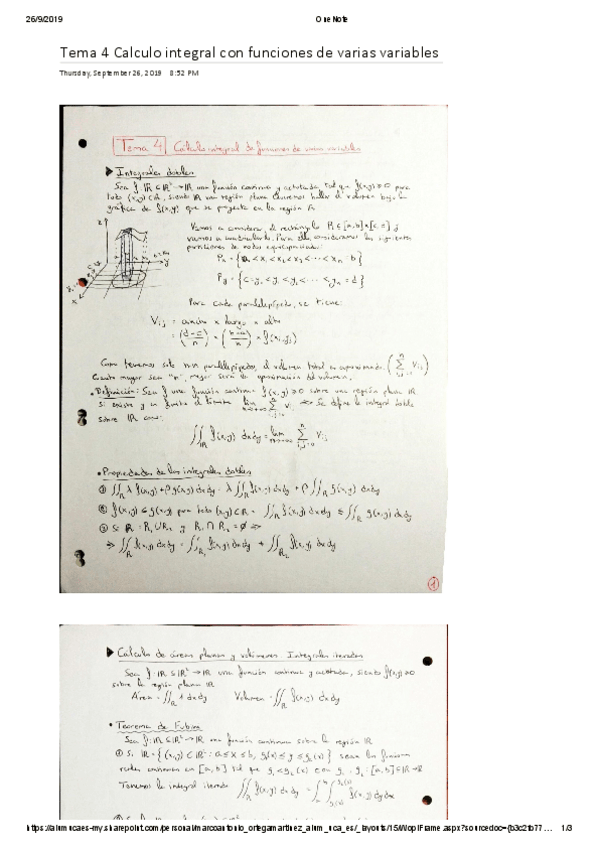 26/9/2019
OneNote
Tema 4 Calculo integral con funciones de varias variables
Thursday, September 26, 2019 8:52 PM
Tema 4 Cálculo integral de funciones de varias variables
▶ Integrales dobles
Sea f: IR ⊆ IR² → IR una función continua y acotada, tal que f(x,y) ≥ 0 para
todo (x,y) ∈ IR, siendo IR una región plana. Queremos hallar el volumen bajo la
gráfica de f(x,y) que se proyecta en la región
Vamos a considerar el rectángulo [a,b]×[c,d] y
vamos a cuadricularlo. Para ello consideramos las siguientes
particiones de nodos equiespaciados:
Px = {a < x₁ < x₂ < x₃ < ... < xn = b}
Py = {c = y₀ < y₁ < y₂ < ... < yn = d}
Para cada paralelepípedo, se tiene:
Vij = ancho × largo × alto
= (d-c/n) × (b-a/n) × f(xi,yj)
Como tenemos solo paralelepípedos, el volumen total es aproximado (∑ Vij)
Cuanto mayor sea "n", mejor será la aproximación del volumen.
• Definición: Sea f una función continua f(x,y) ≥ 0 sobre una región plana IR
Si existe y es finito el límite lim ∑ Vij => Se define la integral doble
sobre IR como:
∬R f(x,y) dxdy = lim ∑ Vij
• Propiedades de las integrales dobles
① ∬R λ f(x,y) + β g(x,y) dxdy = λ ∬R f(x,y) dxdy + β ∬R g(x,y) dxdy
② f(x,y) ≤ g(x,y) para todo (x,y) ∈ IR = ∬R f(x,y) dxdy ≤ ∬R g(x,y) dxdy
③ Si R = R₁ ∪ R₂ y R₁ ∩ R₂ = ∅ =>
=> ∬R f(x,y) dxdy = ∬R₁ f(x,y) dxdy + ∬R₂ f(x,y) dxdy
1
▶ Cálculo de áreas planas y volúmenes. Integrales iteradas
Sea f: IR ⊆ IR² → IR una función continua y acotada, siendo f(x,y) ≥ 0
sobre la región plana IR
Área = ∬R 1 dxdy Volumen = ∬R f(x,y) dxdy
• Teorema de Fubini
Sea f: IR ⊆ IR² → IR una función continua sobre la región IR
① Si IR = {(x,y) ∈ IR² : a ≤ x ≤ b, g₁(x) ≤ y ≤ g₂(x)} sean las funciones
reales continuas en [a,b] tal que g₁, g₂ : [a,b] ⊆ IR → IR
Tenemos la integral iterada ∬R f(x,y) dxdy = ∫ab ∫g₁(x)g₂(x) f(x,y) dydx
https://alumnucaes-my.sharepoint.com/personal/marcoantonio_ortegamartinez_alum_uca_es/_layouts/15/WopiFrame.aspx?sourcedoc={b3c2fb77...
1/3